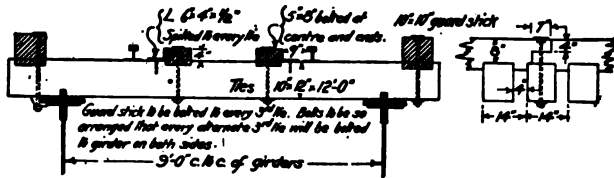 L 6"×4"×1/2"
Spiked to every tie
5"×8" bolted at
centre and ends.
10"×10" guard stick
Ties 10"×12"×12'-0"
Guard stick to be bolted to every 3rd tie. Bolts to be so
arranged that every alternate 3rd tie will be bolted
to girder on both sides.
9'-0" c. to c. of girders
7"
8"
4"
14"
14"